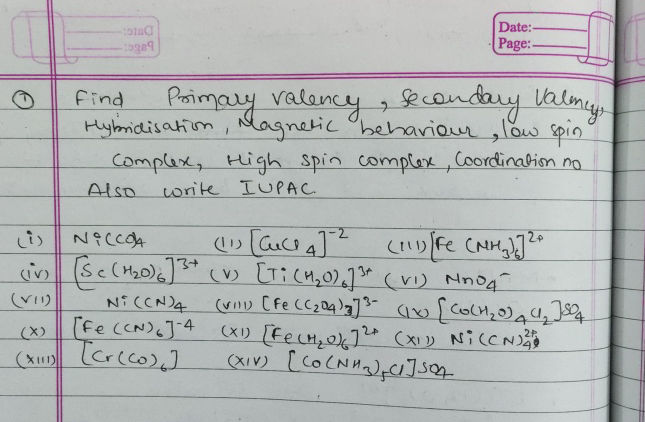 Date:
Page:
① Find Primary valency, Secondary Valency,
Hybridisation, Magnetic behaviour, low spin
Complex, High spin complex, Coordination no
Also write IUPAC.
(i) Ni(CO)4 (ii) [CuCl4]^-2 (iii) [Fe(NH3)6]^2+
(iv) [Sc(H2O)6]^3+ (v) [Ti(H2O)6]^3+ (vi) MnO4^-
(vii) Ni(CN)4 (viii) [Fe(C2O4)3]^3- (ix) [Co(H2O)4Cl2]SO4
(x) [Fe(CN)6]^-4 (xi) [Fe(H2O)6]^2+ (xii) Ni(CN)4^2+
(xiii) [Cr(CO)6] (xiv) [Co(NH3)5Cl]SO4